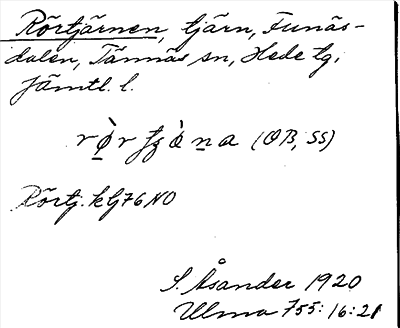 Rörtjärnen, tjärn, Funäs-
dalen, Tännäs sn, Hede tg,
Jämtl. l.
(OB, SS)
Rörtj. kbl 76 NO
S. Åsander 1920
Ulma 755:16:21